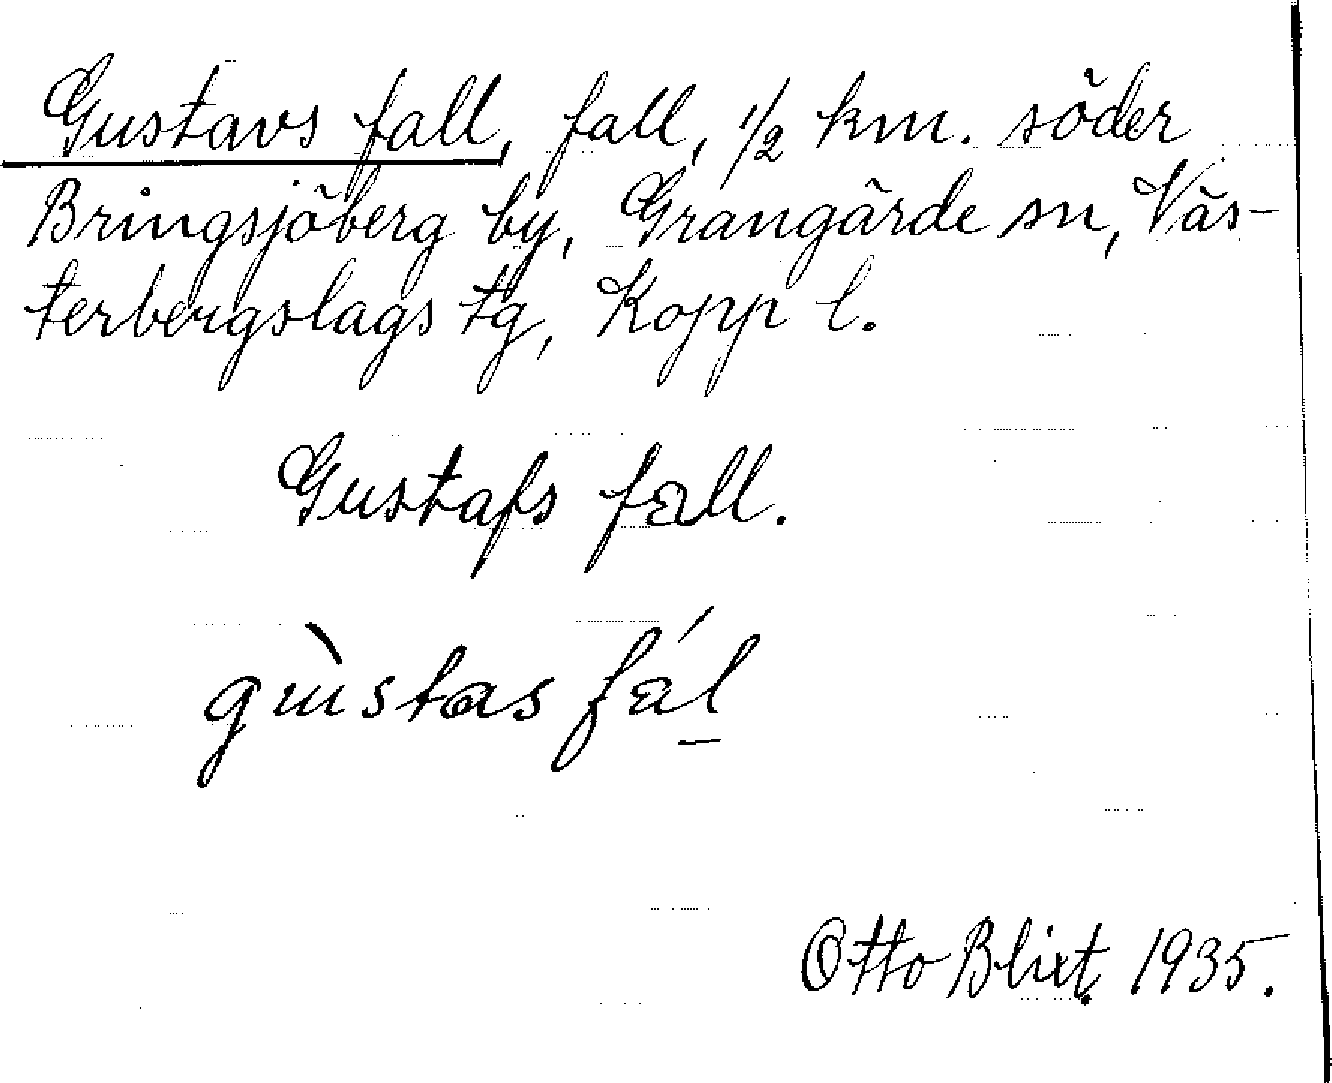 Gustavs fall, fall, 1/2 km. söder
Bringsjöberg by, Grangärde sn, Väs-
terbergslags tg, Kopp l.
Gustafs fall.
gùstas fál
Otto Blixt. 1935.